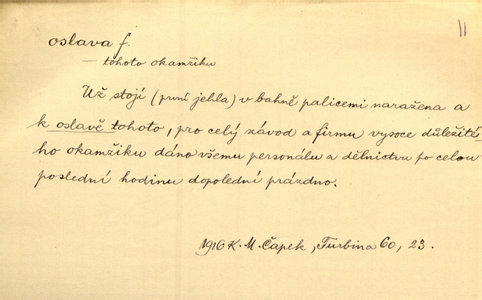 11
oslava f.
– tohoto okamžiku
Už stojí (první jehla) v bahně palicemi naražena a
k oslavě tohoto, pro celý závod a firmu vysoce důležité-
ho okamžiku dáno všemu personálu a dělnictvu po celou
poslední hodinu dopolední prázdno.
1916 K. M. Čapek, Turbina 60, 23.